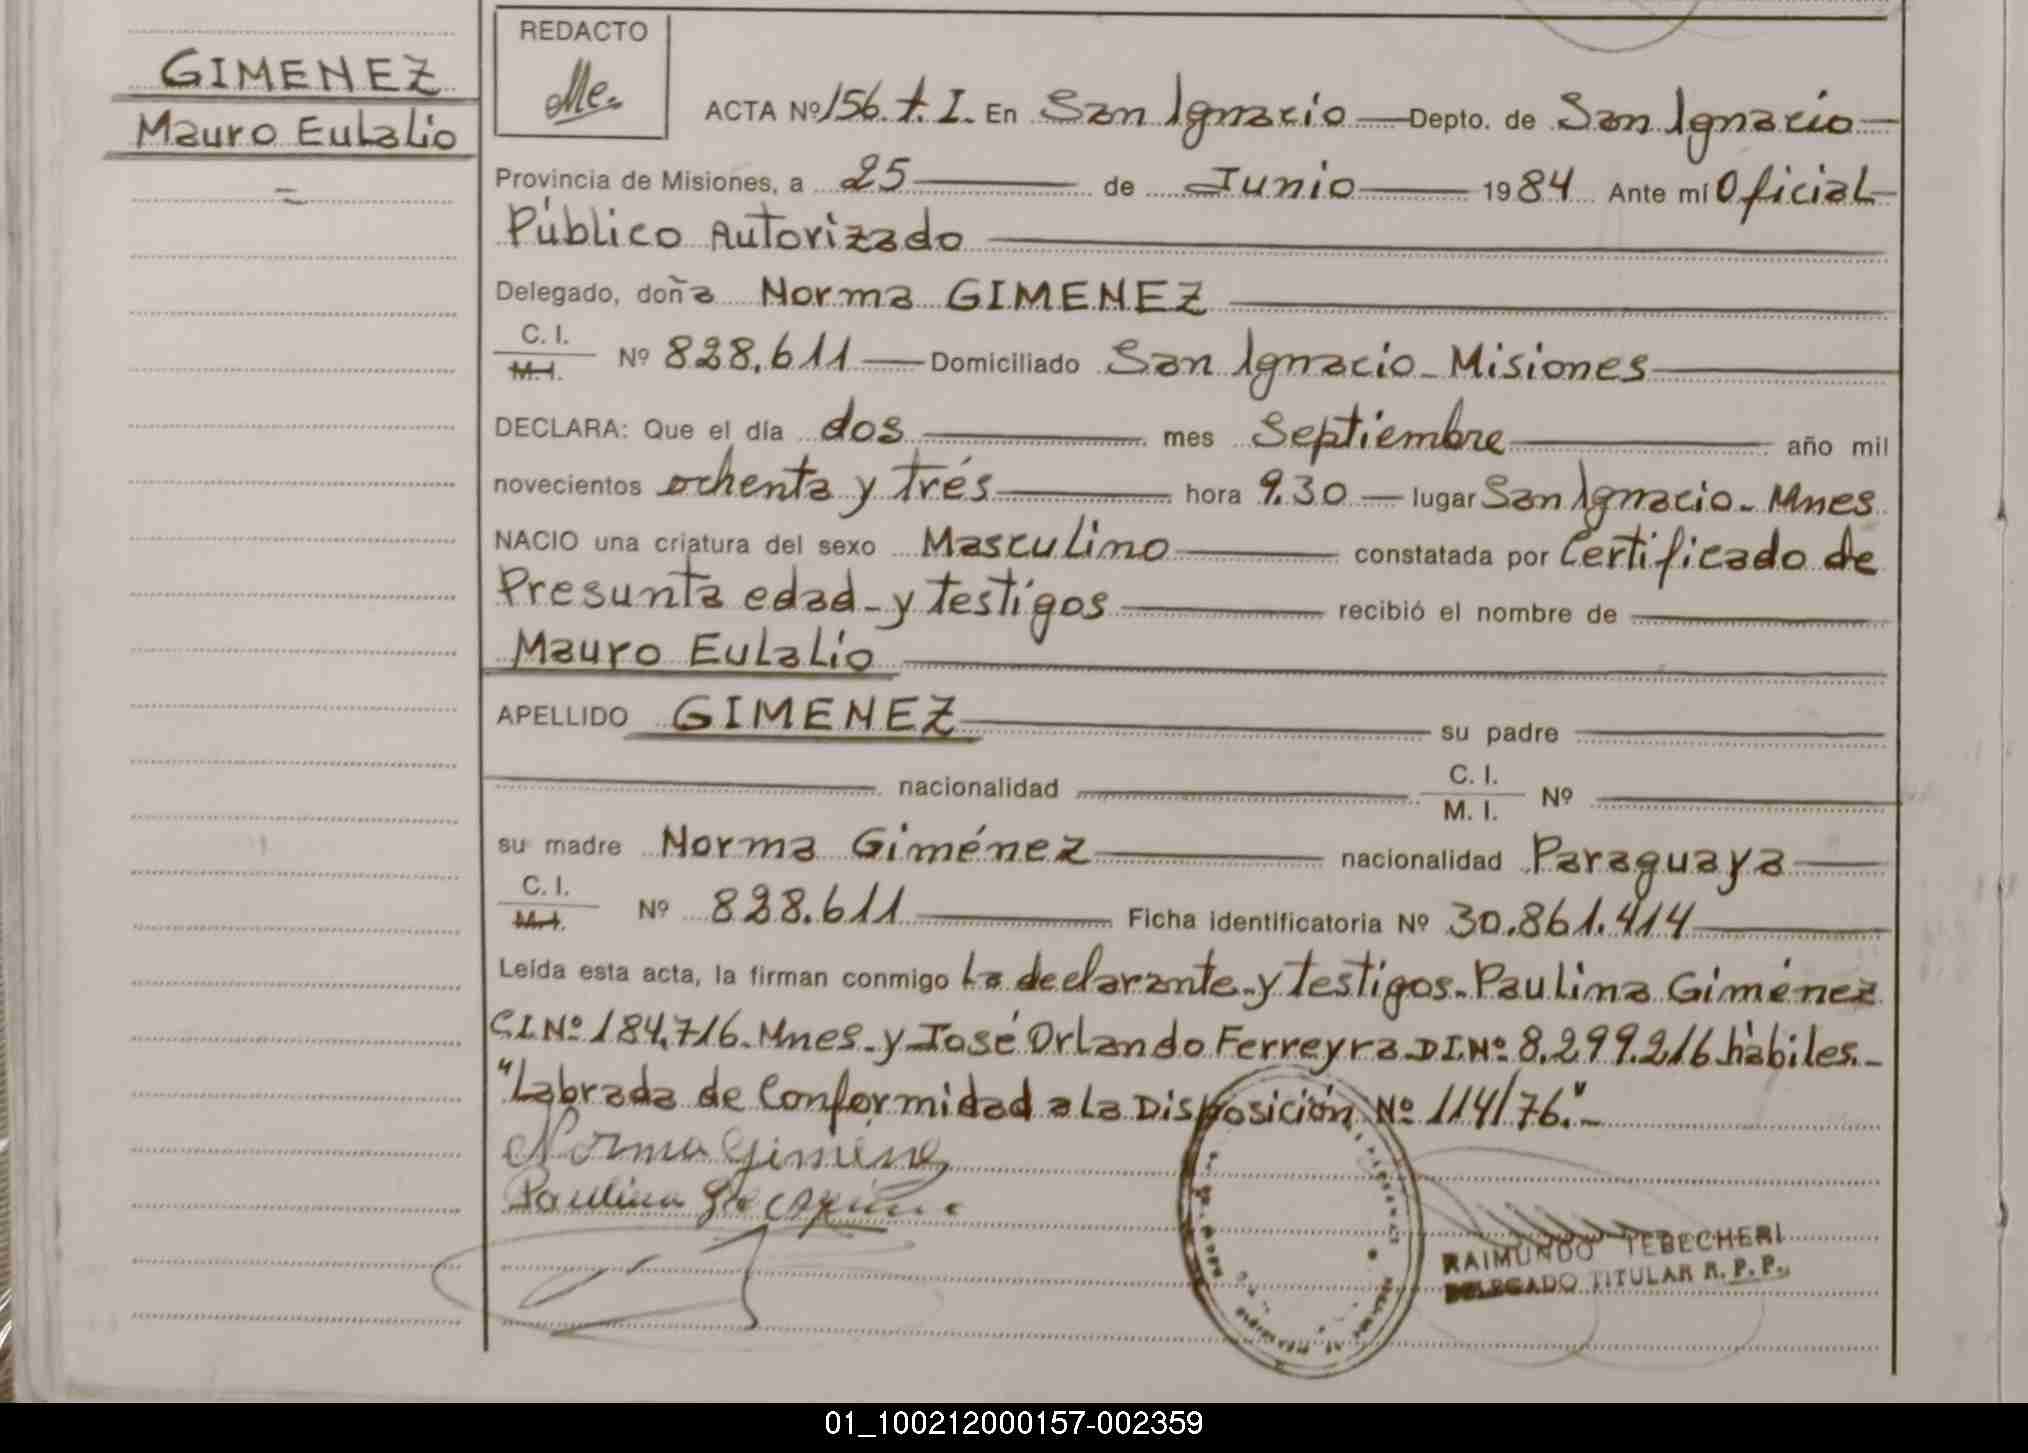 GIMENEZ
Mauro Eulalio
REDACTO
Me.
ACTA Nº 156. t. I. En San Ignacio — Depto. de San Ignacio —
Provincia de Misiones, a 25 — de Junio — 1984 Ante mí Oficial —
Público Autorizado —
Delegado, doña Norma GIMENEZ —
C. I.
M. I. Nº 828.611 — Domiciliado San Ignacio - Misiones —
DECLARA: Que el día dos — mes Septiembre — año mil
novecientos ochenta y trés — hora 9.30 — lugar San Ignacio - Mnes
NACIO una criatura del sexo Masculino — constatada por Certificado de
Presunta edad - y testigos — recibió el nombre de —
Mauro Eulalio —
APELLIDO GIMENEZ — su padre —
— nacionalidad — C. I.
M. I. Nº —
su madre Norma Giménez — nacionalidad Paraguaya —
C. I.
M. I. Nº 828.611 — Ficha identificatoria Nº 30.861.414 —
Leída esta acta, la firman conmigo la declarante - y testigos - Paulina Giménez
C.I. Nº 184.716. Mnes - y José Orlando Ferreyra D I. Nº 8.299.216 hábiles. -
"Labrada de Conformidad a la Disposición Nº 114/76." -
Norma Gimenez
Paulina
RAIMUNDO TEBECHERI
DELEGADO TITULAR R. P. P.
01_100212000157-002359